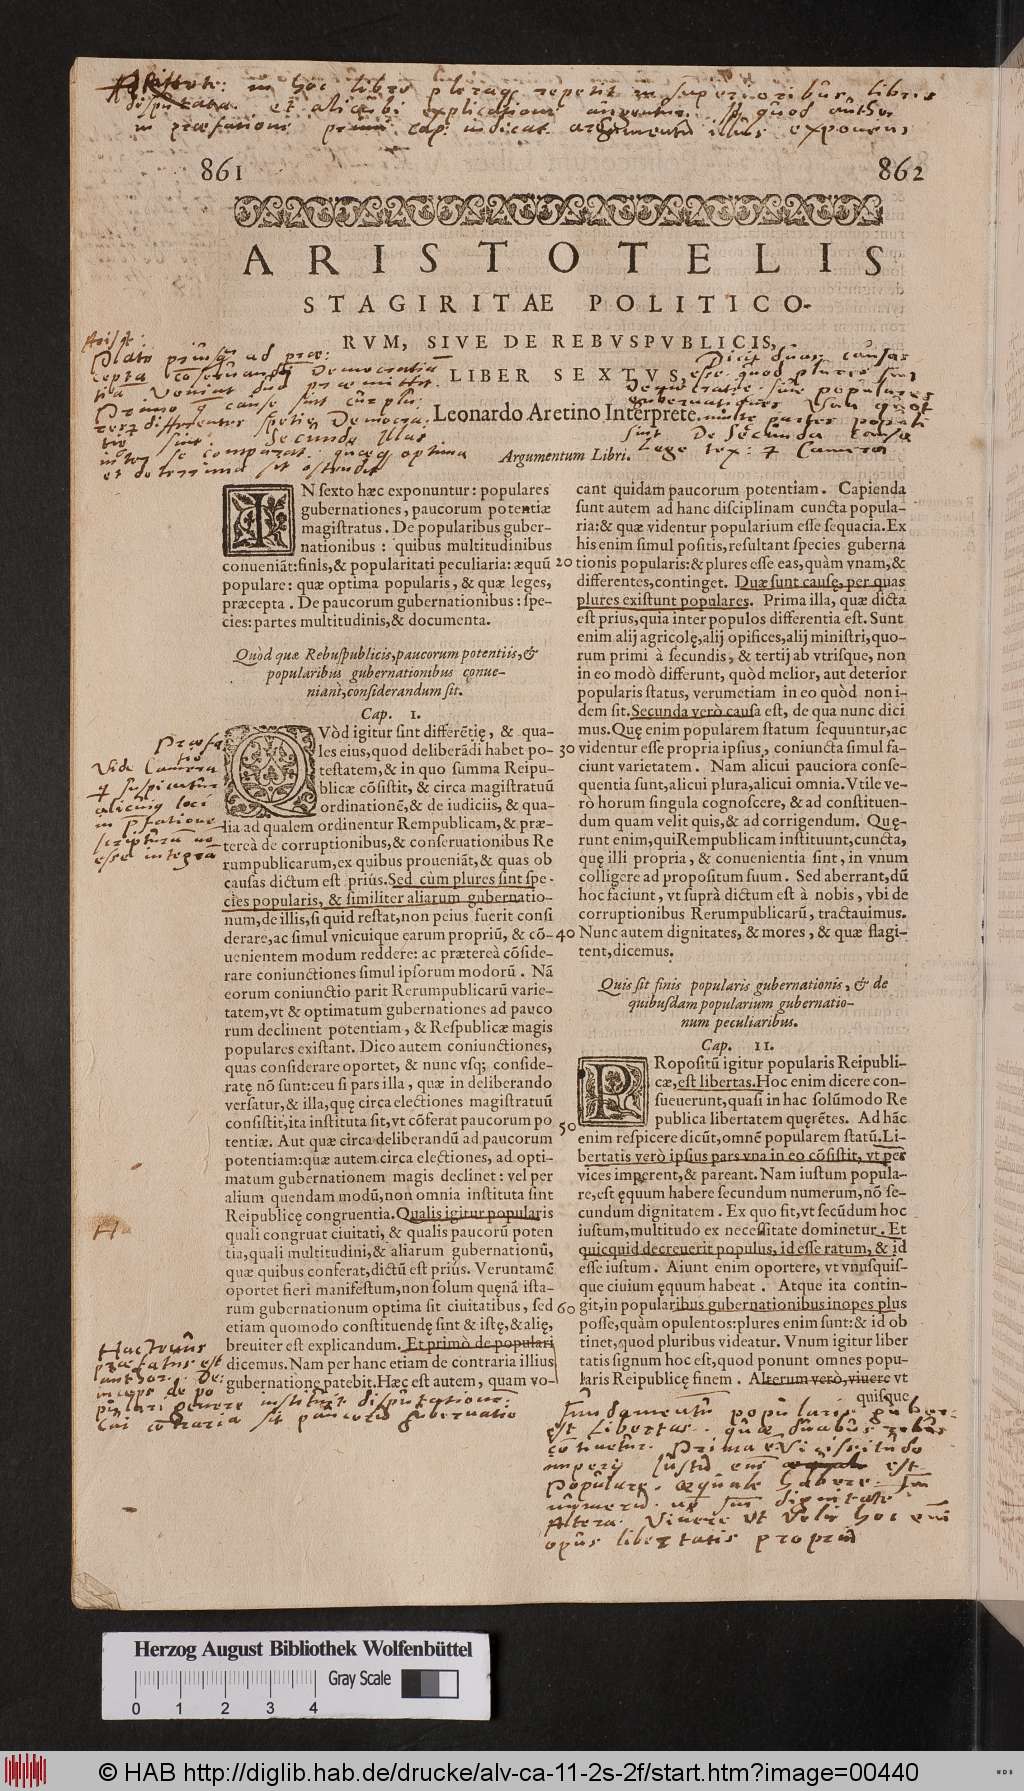 in hoc libro pleraque repetit in superioribus libris
disputata et alicubi
in præfatione primi cap: indicat argumentum illius exponens
861
862
ARISTOTELIS
STAGIRITAE POLITICO-
RVM, SIVE DE REBVSPVBLICIS,
LIBER SEXTVS,
Leonardo Aretino Interprete.
Argumentum Libri.
IN sexto hæc exponuntur: populares
gubernationes, paucorum potentiæ
magistratus. De popularibus guber-
nationibus: quibus multitudinibus
conueniāt: finis, & popularitati peculiaria: æquū
populare: quæ optima popularis, & quæ leges,
præcepta. De paucorum gubernationibus: spe-
cies: partes multitudinis, & documenta.
Quòd quæ Rebuspublicis, paucorum potentiis, &
popularibus gubernationibus conue-
niant, considerandum sit.
Cap. 1.
QVòd igitur sint differētię, & qua-
les eius, quod deliberādi habet po-
testatem, & in quo summa Reipu-
blicæ cōsistit, & circa magistratuū
ordinationē, & de iudiciis, & qua-
lia ad qualem ordinentur Rempublicam, & præ-
tereà de corruptionibus, & conseruationibus Re
rumpublicarum, ex quibus proueniāt, & quas ob
causas dictum est priùs. Sed cùm plures sint spe-
cies popularis, & similiter aliarum gubernatio-
num, de illis, si quid restat, non peius fuerit consi
derare, ac simul vnicuique earum propriū, & cō-
uenientem modum reddere: ac prætereà cōside-
rare coniunctiones simul ipsorum modorū. Nā
eorum coniunctio parit Rerumpublicarū varie-
tatem, vt & optimatum gubernationes ad pauco
rum declinent potentiam, & Respublicæ magis
populares existant. Dico autem coniunctiones,
quas considerare oportet, & nunc vsq; conside-
ratę nō sunt: ceu si pars illa, quæ in deliberando
versatur, & illa, quę circa electiones magistratuū
consistit, ita instituta sit, vt cōferat paucorum po
tentiæ. Aut quæ circa deliberandū ad paucorum
potentiam: quæ autem circa electiones, ad opti-
matum gubernationem magis declinet: vel per
alium quendam modū, non omnia instituta sint
Reipublicę congruentia. Qualis igitur popularis
quali congruat ciuitati, & qualis paucorū poten
tia, quali multitudini, & aliarum gubernationū,
quæ quibus conferat, dictū est priùs. Veruntamē
oportet fieri manifestum, non solum quęnā ista-
rum gubernationum optima sit ciuitatibus, sed
etiam quomodo constituendę sint & istę, & alię,
breuiter est explicandum. Et primò de populari
dicemus. Nam per hanc etiam de contraria illius
gubernatione patebit. Hæc est autem, quam vo-
cant quidam paucorum potentiam. Capienda
sunt autem ad hanc disciplinam cuncta popula-
ria: & quæ videntur popularium esse sequacia. Ex
his enim simul positis, resultant species guberna
20 tionis popularis: & plures esse eas, quàm vnam, &
differentes, continget. Duæ sunt causę, per quas
plures existunt populares. Prima illa, quæ dicta
est prius, quia inter populos differentia est. Sunt
enim alij agricolę, alij opifices, alij ministri, quo-
rum primi à secundis, & tertij ab vtrisque, non
in eo modò differunt, quòd melior, aut deterior
popularis status, verumetiam in eo quòd non i-
dem sit. Secunda verò causa est, de qua nunc dici
mus. Quę enim popularem statum sequuntur, ac
30 videntur esse propria ipsius, coniuncta simul fa-
ciunt varietatem. Nam alicui pauciora conse-
quentia sunt, alicui plura, alicui omnia. Vtile ve-
rò horum singula cognoscere, & ad constituen-
dum quam velit quis, & ad corrigendum. Quę-
runt enim, qui Rempublicam instituunt, cuncta,
quę illi propria, & conuenientia sint, in vnum
colligere ad propositum suum. Sed aberrant, dū
hoc faciunt, vt suprà dictum est à nobis, vbi de
corruptionibus Rerumpublicarū, tractauimus.
40 Nunc autem dignitates, & mores, & quæ flagi-
tent, dicemus.
Quis sit finis popularis gubernationis, & de
quibusdam popularium gubernatio-
num peculiaribus.
Cap. 11.
PRopositū igitur popularis Reipubli-
cæ, est libertas. Hoc enim dicere con-
sueuerunt, quasi in hac solūmodo Re
publica libertatem quęrētes. Ad hāc
50 enim respicere dicūt, omnē popularem statū. Li-
bertatis verò ipsius pars vna in eo cōsistit, vt per
vices imperent, & pareant. Nam iustum popula-
re, est ęquum habere secundum numerum, nō se-
cundum dignitatem. Ex quo fit, vt secūdum hoc
iustum, multitudo ex necessitate dominetur. Et
quicquid decreuerit populus, id esse ratum, & id
esse iustum. Aiunt enim oportere, vt vnusquis-
que ciuium ęquum habeat. Atque ita contin-
60 git, in popularibus gubernationibus inopes plus
posse, quàm opulentos: plures enim sunt: & id ob
tinet, quod pluribus videatur. Vnum igitur liber
tatis signum hoc est, quod ponunt omnes popu-
laris Reipublicę finem. Alterum verò, viuere vt
quisque
Fundamentū popularis guber-
est Libertas. quæ duabus rebus
cōtinetur. Prima est Vicissitudo
imperij est
populare. æquale habere
numerū: nō dignitatē
Altera. Vivere ut velis hoc enī
opus libertatis propriū
Herzog August Bibliothek Wolfenbüttel
Gray Scale
0 1 2 3 4
© HAB http://diglib.hab.de/drucke/alv-ca-11-2s-2f/start.htm?image=00440